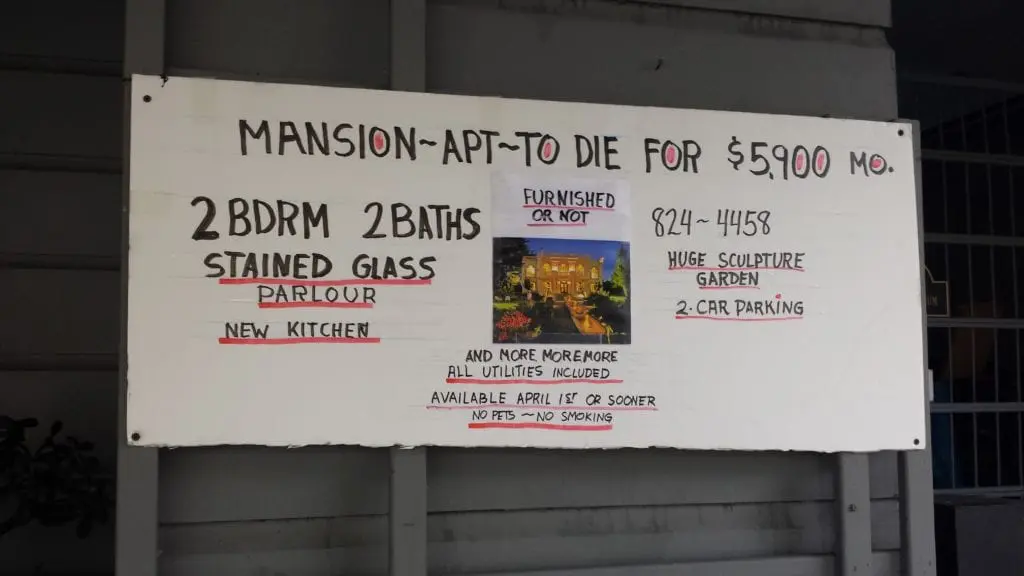 MANSION~APT~TO DIE FOR $5,900 MO.
2 BDRM 2 BATHS
STAINED GLASS
PARLOUR
NEW KITCHEN
FURNISHED
OR NOT
824~4458
HUGE SCULPTURE
GARDEN
2-CAR PARKING
AND MORE MOREMORE
ALL UTILITIES INCLUDED
AVAILABLE APRIL 1ST OR SOONER
NO PETS ~ NO SMOKING